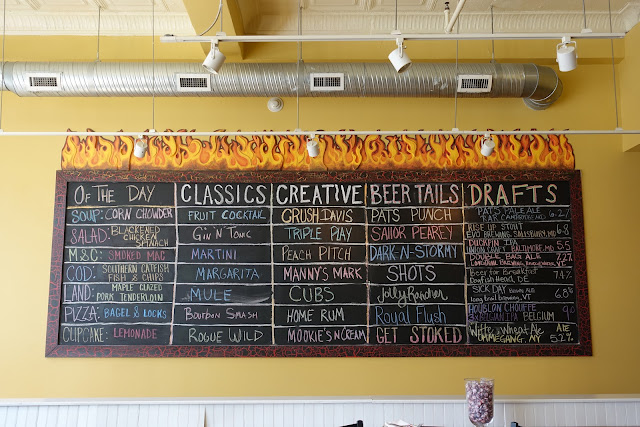 OF THE DAY CLASSICS CREATIVE BEER TAILS DRAFTS
SOUP: CORN CHOWDER FRUIT COCKTAIL GRUSH DAVIS PATS PUNCH PATS PALE ALE
SALAD: BLACKENED CHICKEN SPINACH GIN N' TONIC TRIPLE PLAY SAILOR PEAREY RISE UP STOUT
EVO BREWING, SALISBURY, MD 6.8
M&C: SMOKED MAC MARTINI PEACH PITCH DARK-N-STORMY DUCKPIN IPA
BALTIMORE, MD 5.5
COD: SOUTHERN CATFISH FISH & CHIPS MARGARITA MANNY'S MARK SHOTS DOUBLE BAG ALE 7.2%
AND: MAPLE GLAZED PORK TENDERLOIN MULE CUBS Jolly Rancher Beer for Breakfast 7.4%
Dogfish Head, DE
SICK DAY 6.8%
long trail brewing, VT
PIZZA: BAGEL & LOCKS Bourbon Smash HOME RUN Royal Flush HOUBLON CHOUFFE
BELGIUM
CUPCAKE: LEMONADE ROGUE WILD MOOKIE'S N CREAM GET STOKED Witte Wheat Ale
OMMEGANG, NY 5.2%